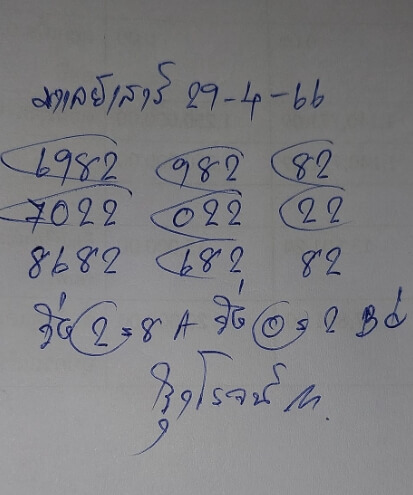 มาเลย์เสาร์ 29-4-66
6982 982 82
7022 022 22
8682 682 82
วิ่ง 2 = 8 A วิ่ง 0 = 2 B
โรจน์